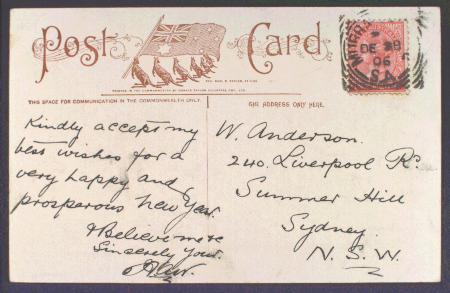 Post Card
THIS SPACE FOR COMMUNICATION IN THE COMMONWEALTH ONLY.
THE ADDRESS ONLY HERE.
DE 28
06
S.A.
Kindly accept my
best wishes for a
very happy and
prosperous New Year.
& Believe me
Sincerely Your
W. Anderson.
240 Liverpool Rd.
Summer Hill
Sydney.
N. S. W.